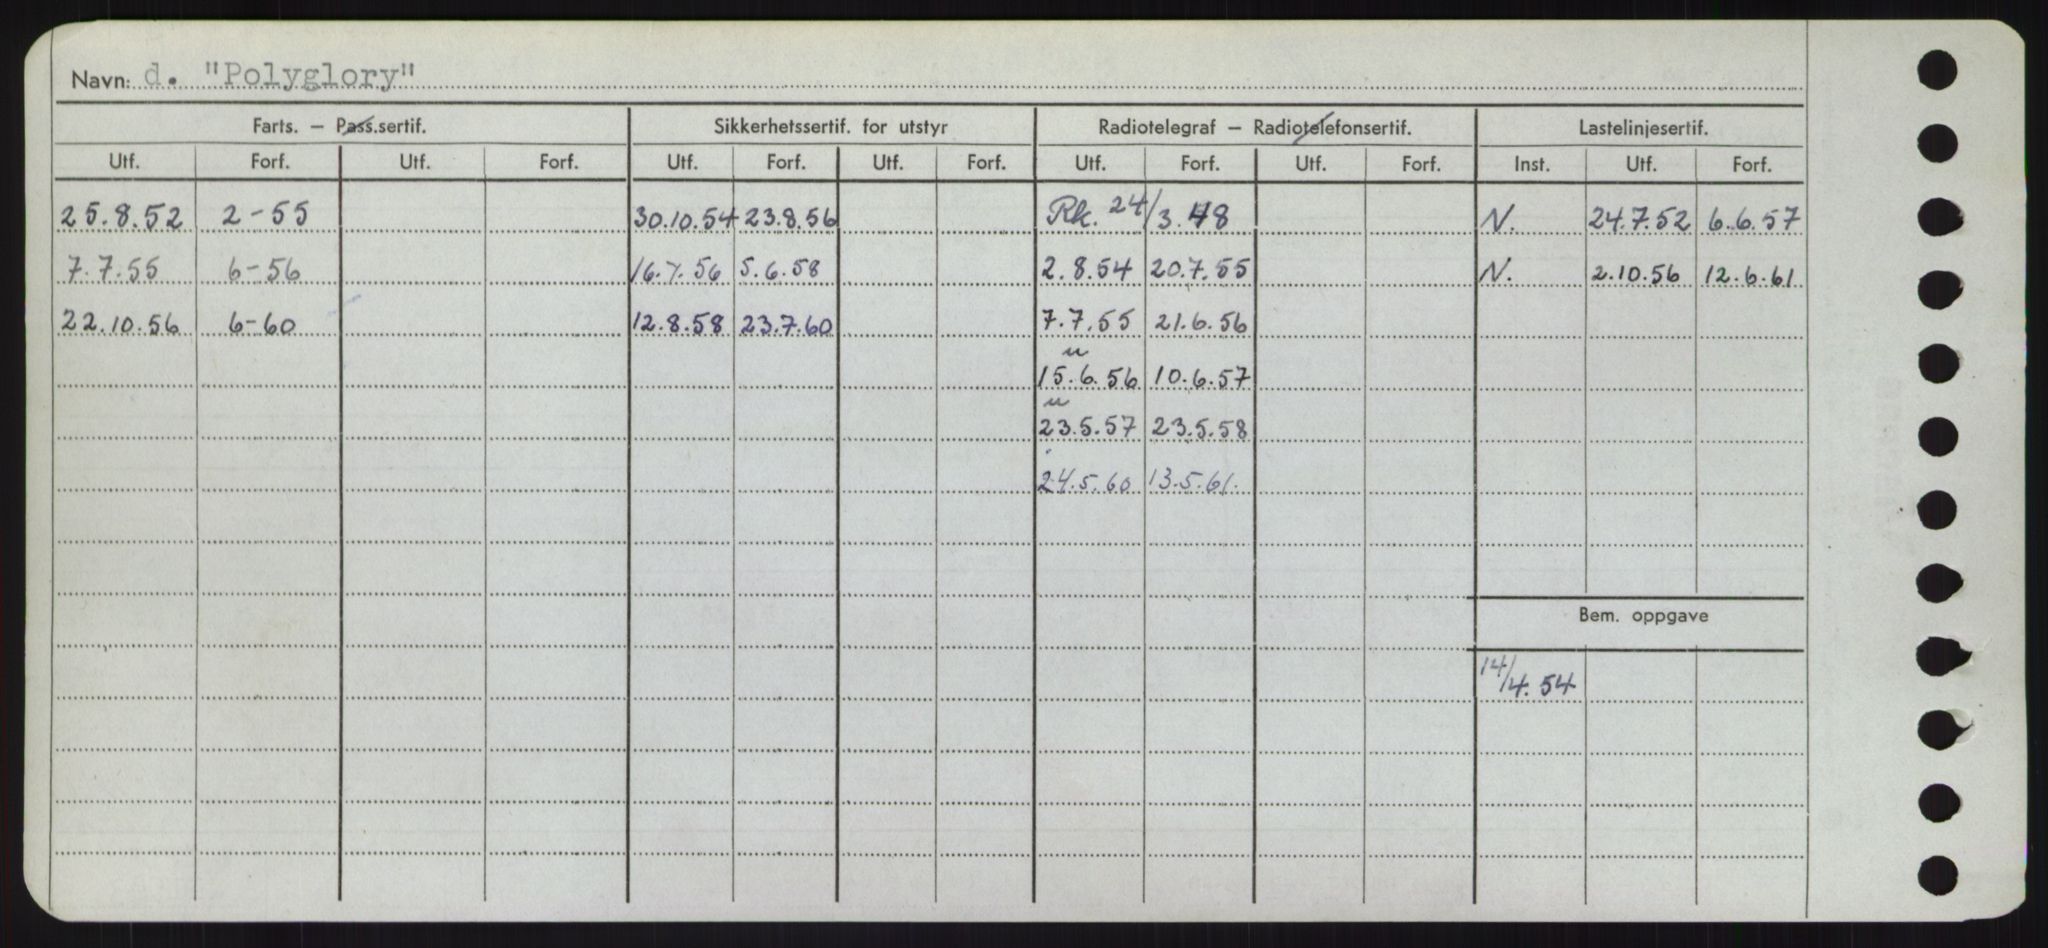 Navn: d. "Polyglory"
Farts. — Pass.sertif. Sikkerhetssertif. for utstyr Radiotelegraf — Radiotelefonsertif. Lastelinjesertif.
Utf. Forf. Utf. Forf. Utf. Forf. Utf. Forf. Utf. Forf. Utf. Forf. Inst. Utf. Forf.
25.8.52 2-55 30.10.54 23.8.56 Rk. 24/3.48 N. 24.7.52 6.6.57
7.7.55 6-56 16.7.56 5.6.58 2.8.54 20.7.55 N. 2.10.56 12.6.61
22.10.56 6-60 12.8.58 23.7.60 7.7.55 21.6.56
u
15.6.56 10.6.57
u
23.5.57 23.5.58
24.5.60 13.5.61.
Bem. oppgave
14/4.54